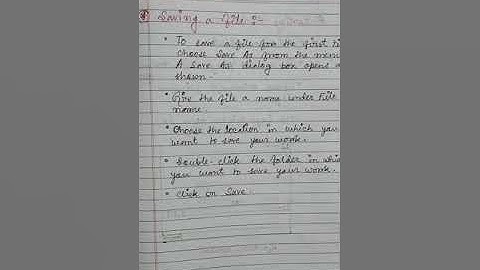 Saving a file :-
• To save a file for the first
choose Save As from the men
A Save As dialog box opens a
shown.
• Give the file a name under File
name.
• Choose the location in which you
want to save your work.
• Double-click the folder in whic
you want to save your work.
• Click on Save.